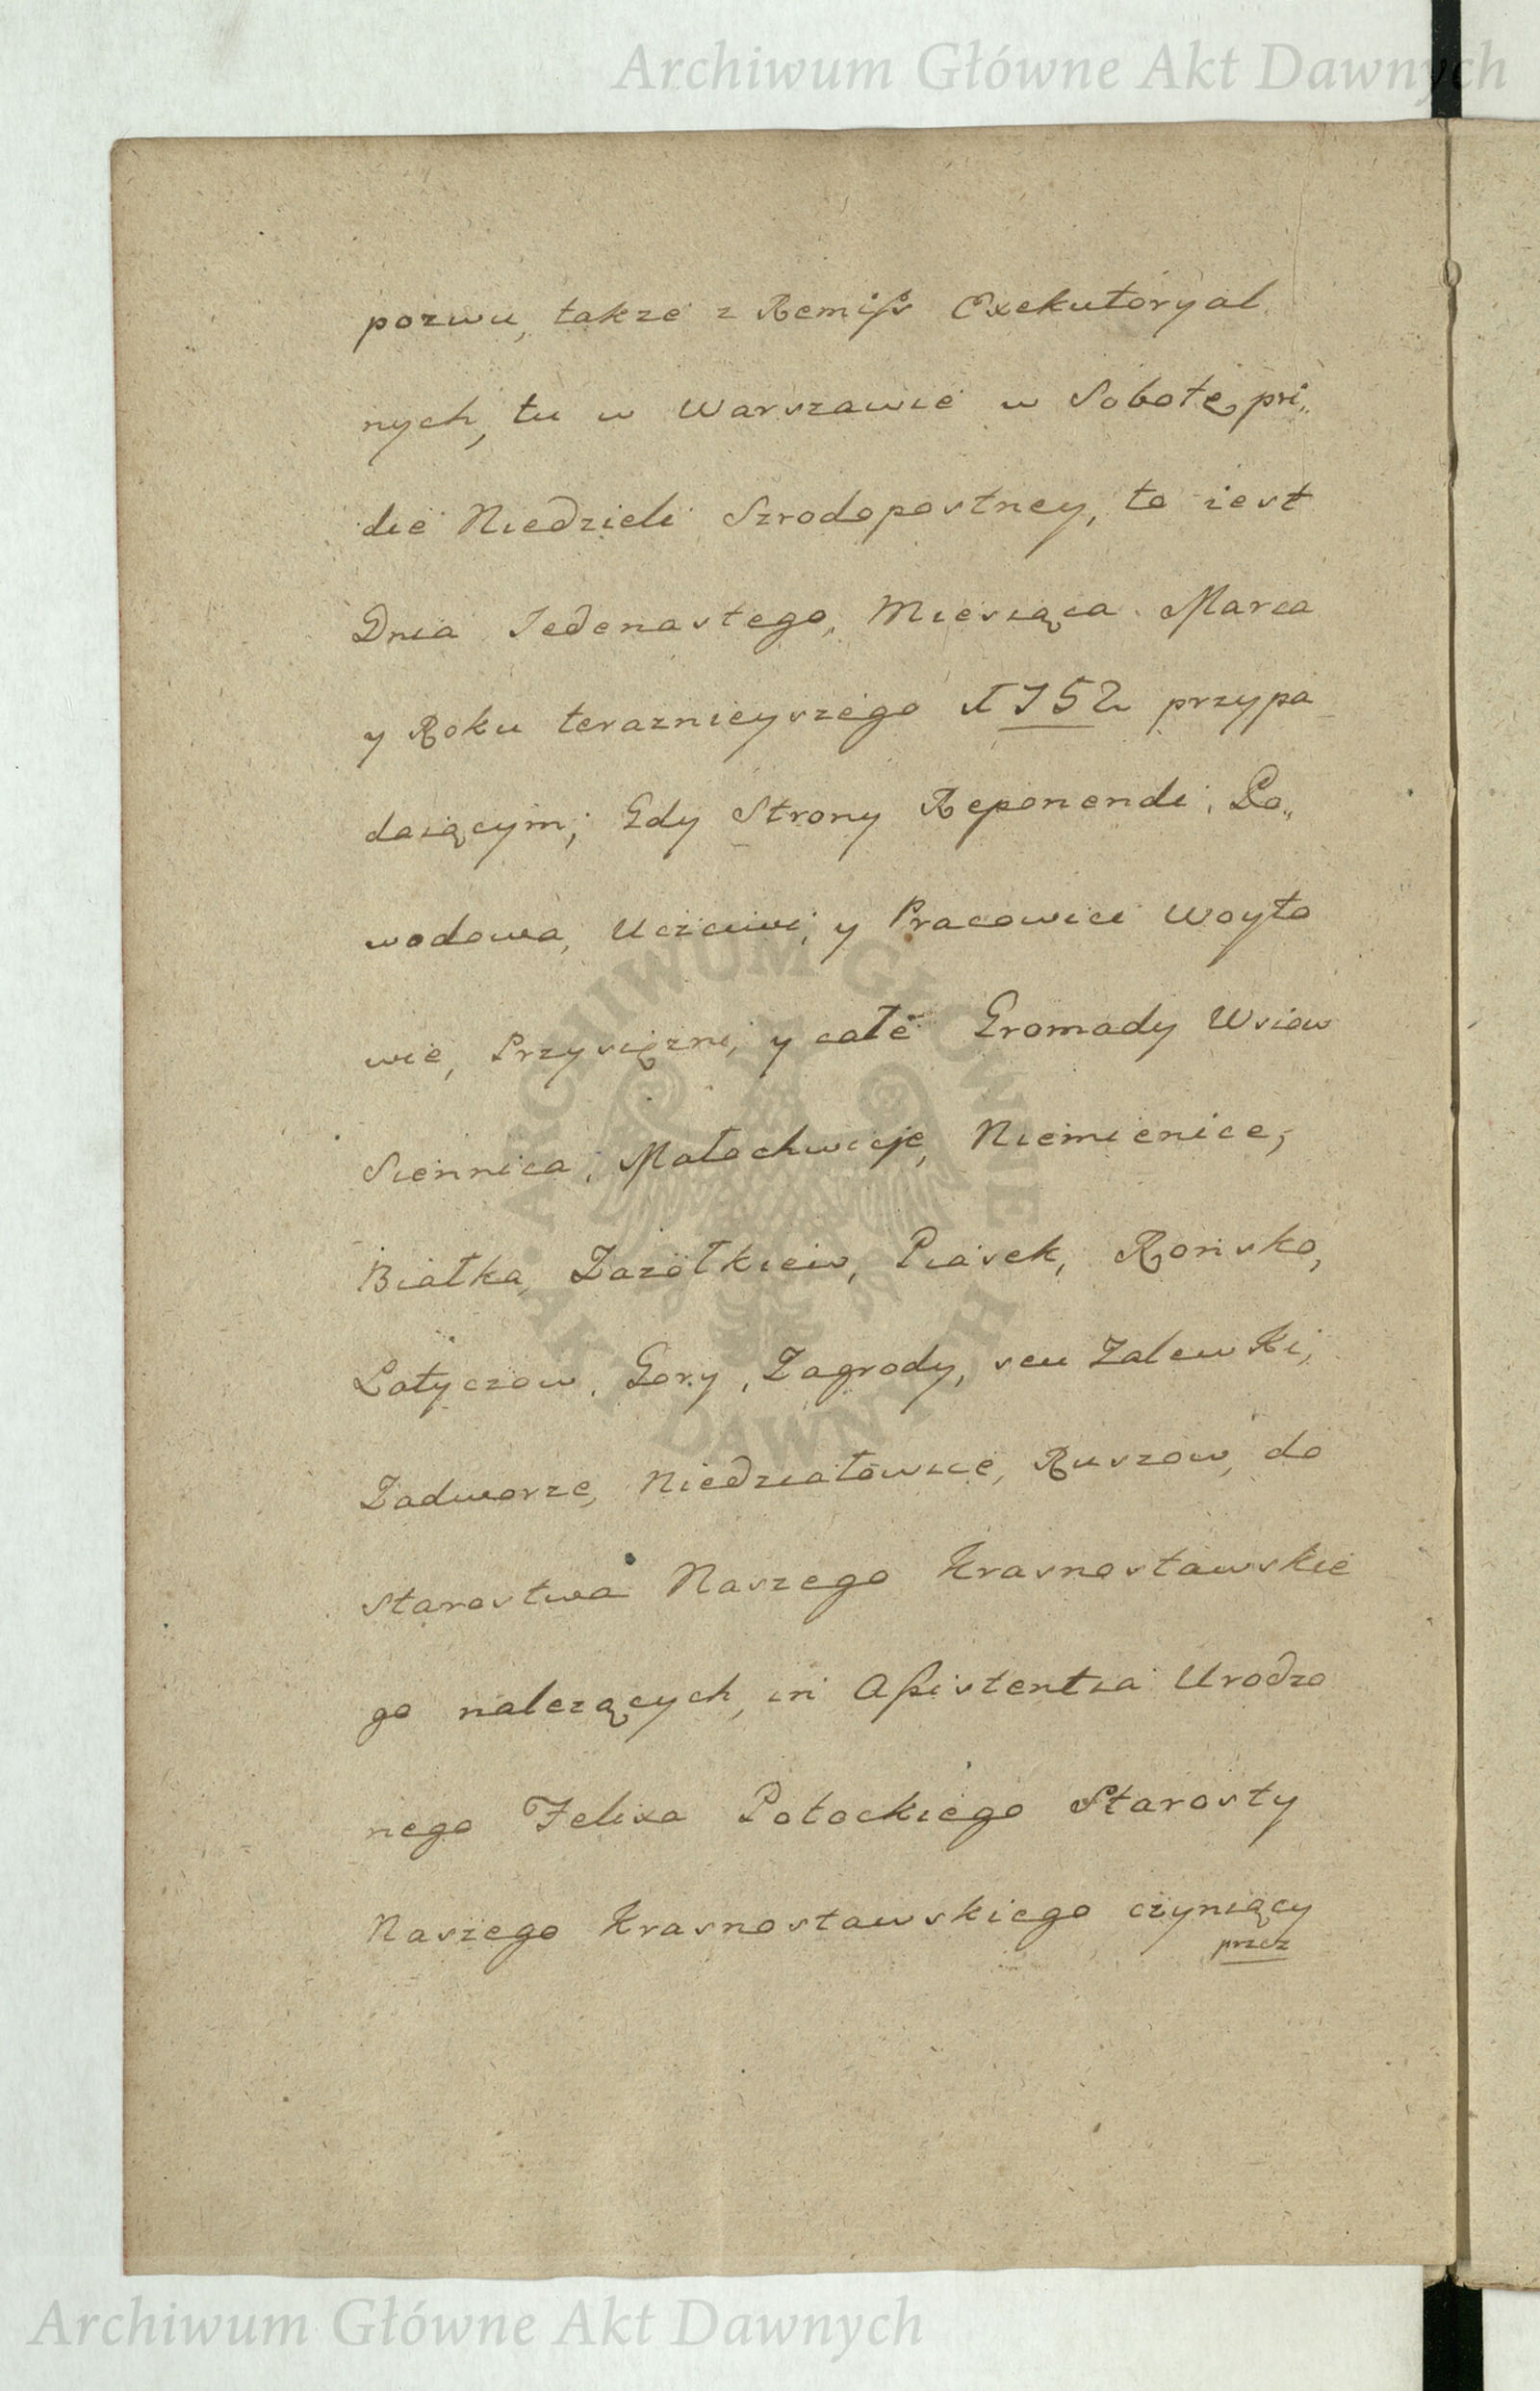 Archiwum Główne Akt Dawnych
pozwu, takze z Remiſs Exekutoryal
nych, tu w Warszawie w Sobotę pri„
die Niedzieli Szrodopostney, to iest
Dnia Jedenastego, Miesiąca Marca
y Roku teraznieyszego 1752 przypa
daiącym; Gdy Strony Reponendi, Po„
wodowa, Uczciwi, y Pracowici Woyto
wie, Przysięzni, y całe Gromady Wsiow
Siennica, Małochwieje, Niemienice,
Białka, Zazołkiew, Piasek, Rońsko,
Latyczow, Gory, Zagrody, seu Zalewki,
Zadworze, Niedziałowice, Ruszow, do
Starostwa Naszego Krasnostawskie
go nalezących, in Aſsistentia Urodzo
nego Felixa Potockiego Starosty
Naszego Krasnostawskiego czyniący
przez
ARCHIWUM GŁÓWNE
AKT DAWNYCH
Archiwum Główne Akt Dawnych